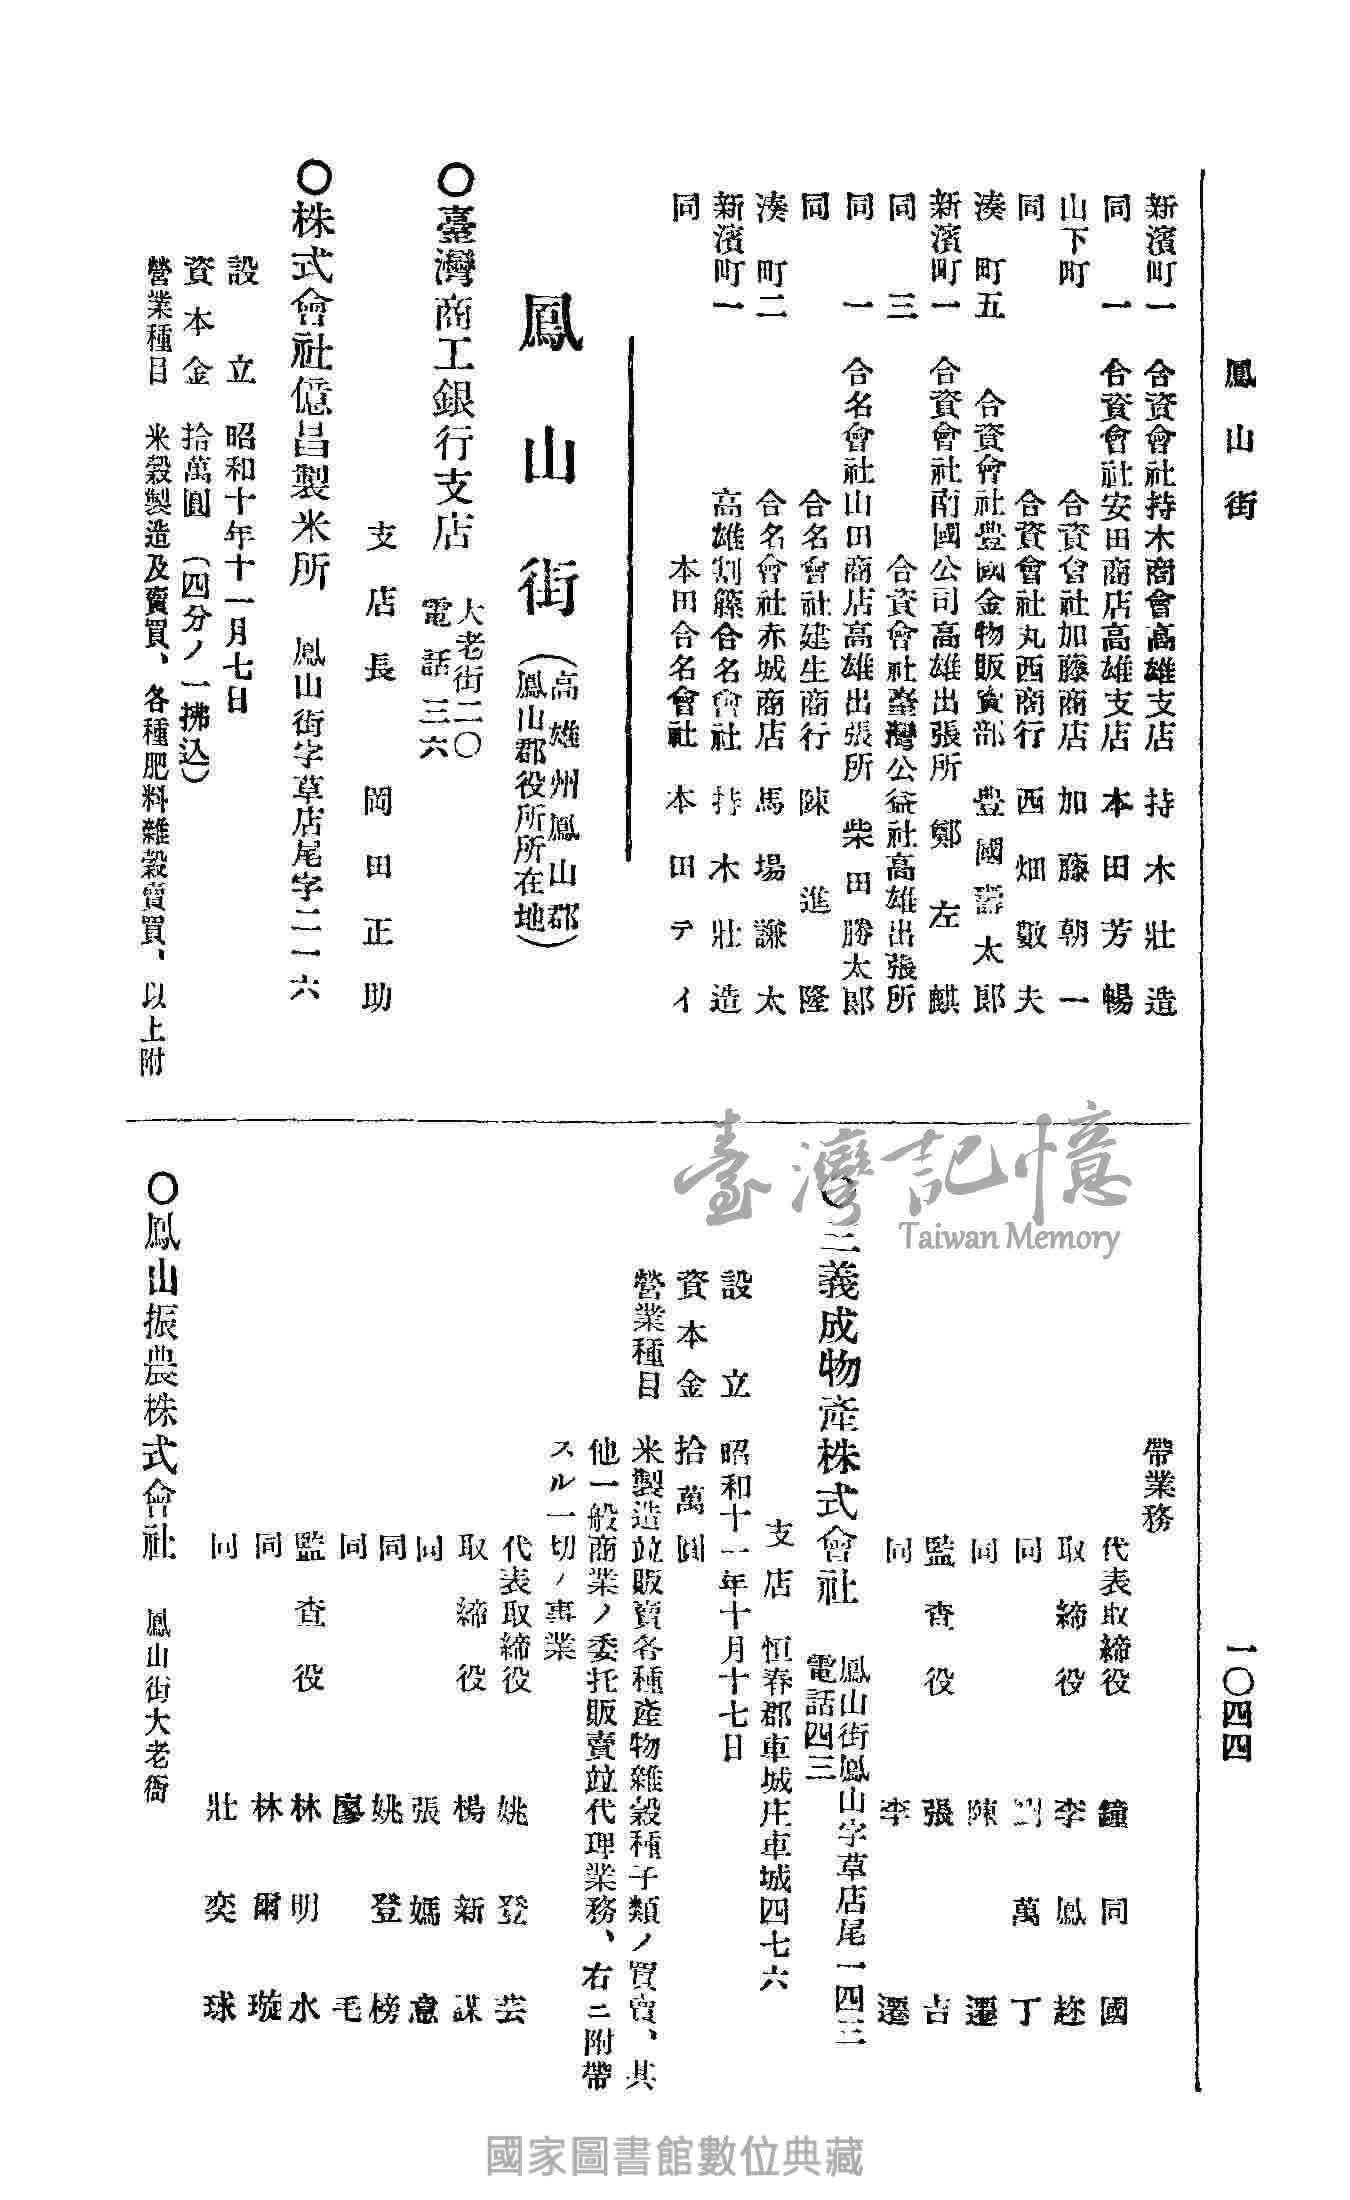 鳳山街
一〇四四
新濱町一 合資會社持木商會高雄支店 持木壯造
同 一 合資會社安田商店高雄支店 本田芳暢
山下町 合資會社加藤商店 加藤朝一
同 合資會社丸西商行 西畑數夫
湊町五 合資會社豐國金物販賣部 豐國壽太郎
新濱町一 合資會社南國公司高雄出張所 鄭左麒
同 三 合資會社臺灣公益社高雄出張所
同 一 合名會社山田商店高雄出張所 柴田勝太郎
同 合名會社建生商行 陳進隆
湊町二 合名會社赤城商店 馬場謙太
新濱町一 高雄割籐合名會社 持木壯造
同 本田合名會社 本田テイ
鳳山街(高雄州鳳山郡
鳳山郡役所所在地)
〇臺灣商工銀行支店 大老街二〇
電話三六
支店長 岡田正助
〇株式會社億昌製米所 鳳山街字草店尾字二一六
設立 昭和十年十一月七日
資本金 拾萬圓(四分ノ一拂込)
營業種目 米穀製造及賣買、各種肥料雜穀賣買、以上附
帶業務
代表取締役 鐘同國
取締役 李鳳
同 劉萬丁
同 陳遷
監査役 張吉
同 李遷
〇三義成物產株式會社 鳳山街鳳山字草店尾一四三
電話四三
支店 恒春郡車城庄車城四七六
設立 昭和十一年十月十七日
資本金 拾萬圓
營業種目 米製造竝販賣各種產物雜穀種子類ノ買賣、其
他一般商業ノ委托販賣竝代理業務、右ニ附帶
スル一切ノ事業
代表取締役 姚登芸
取締役 楊新謀
同 張媽意
同 姚登榜
同 廖毛
監査役 林明水
同 林爾璇
同 壯奕球
〇鳳山振農株式會社 鳳山街大老衙
臺灣記憶
Taiwan Memory
國家圖書館數位典藏